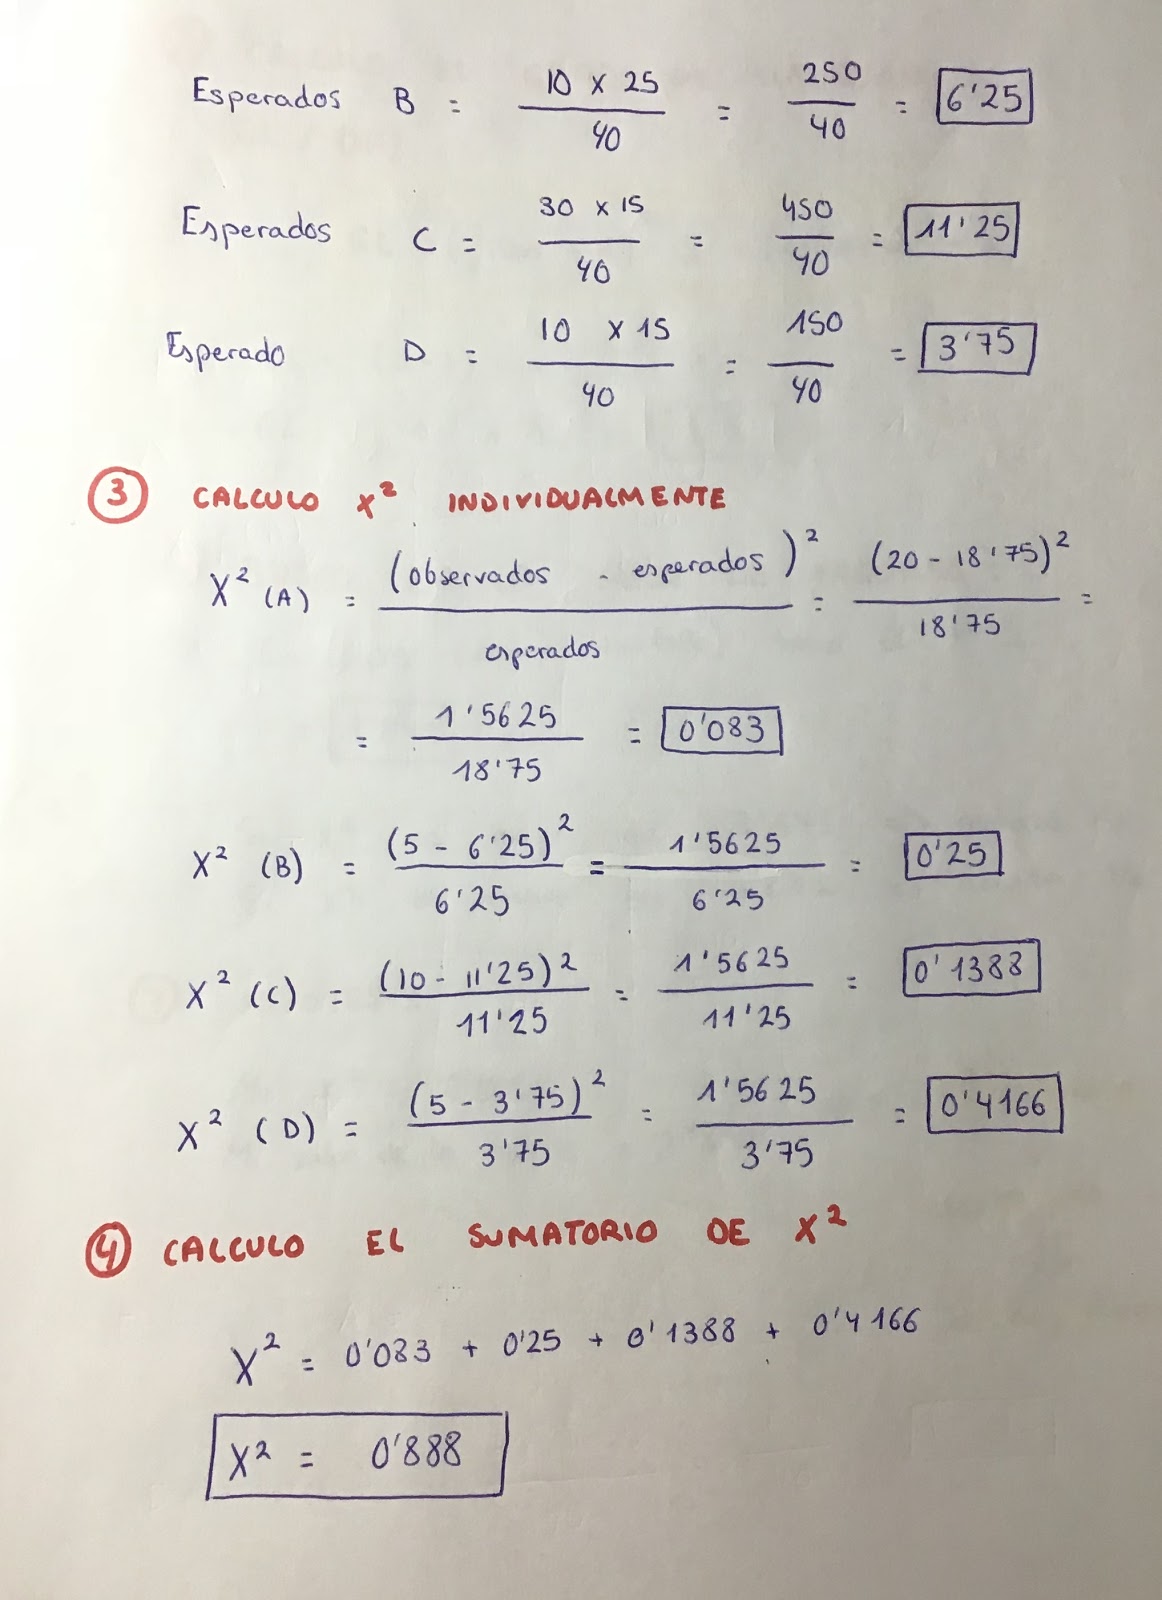 Esperados B = 10 x 25 / 40 = 250 / 40 = 6'25
Esperados C = 30 x 15 / 40 = 450 / 40 = 11'25
Esperado D = 10 x 15 / 40 = 150 / 40 = 3'75
3 CALCULO x² INDIVIDUALMENTE
X² (A) = (observados - esperados)² / esperados = (20 - 18'75)² / 18'75 =
= 1'5625 / 18'75 = 0'083
X² (B) = (5 - 6'25)² / 6'25 = 1'5625 / 6'25 = 0'25
X² (C) = (10 - 11'25)² / 11'25 = 1'5625 / 11'25 = 0'1388
X² (D) = (5 - 3'75)² / 3'75 = 1'5625 / 3'75 = 0'4166
4 CALCULO EL SUMATORIO DE X²
X² = 0'083 + 0'25 + 0'1388 + 0'4166
X² = 0'888